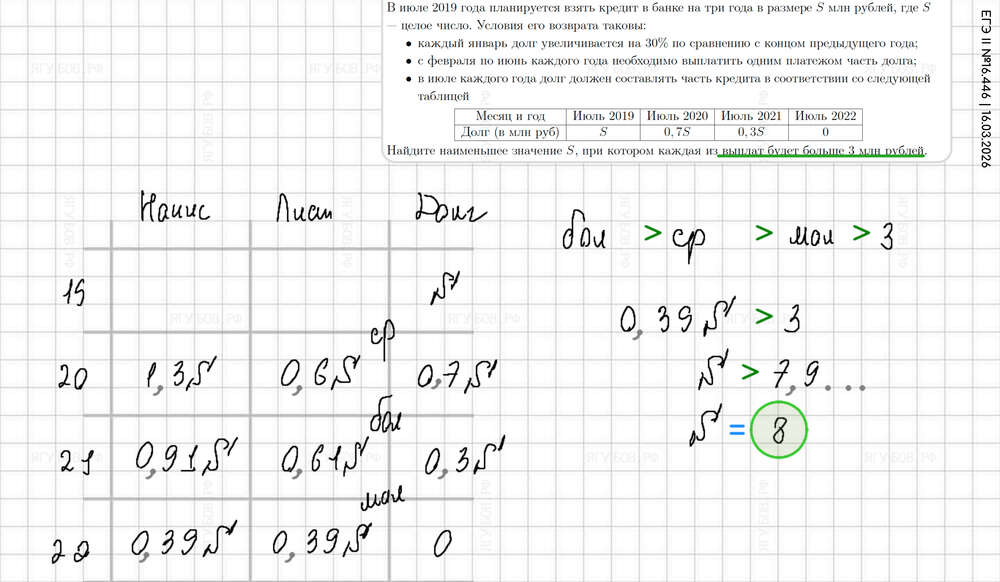 В июле 2019 года планируется взять кредит в банке на три года в размере S млн рублей, где S
— целое число. Условия его возврата таковы:
• каждый январь долг увеличивается на 30% по сравнению с концом предыдущего года;
• с февраля по июнь каждого года необходимо выплатить одним платежом часть долга;
• в июле каждого года долг должен составлять часть кредита в соответствии со следующей
таблицей
Месяц и год Июль 2019 Июль 2020 Июль 2021 Июль 2022
Долг (в млн руб) S 0,7S 0,3S 0
Найдите наименьшее значение S, при котором каждая из выплат будет больше 3 млн рублей.
ЕГЭ II №16.446 | 16.03.2026
Долг
бол > ср > мал > 3
19 S
0,39S > 3
ср
20 1,3S 0,6S 0,7S
S > 7,9...
бол
S = 8
21 0,91S 0,61S 0,3S
мал
22 0,39S 0,39S 0
ЯГУБОВ.РФ